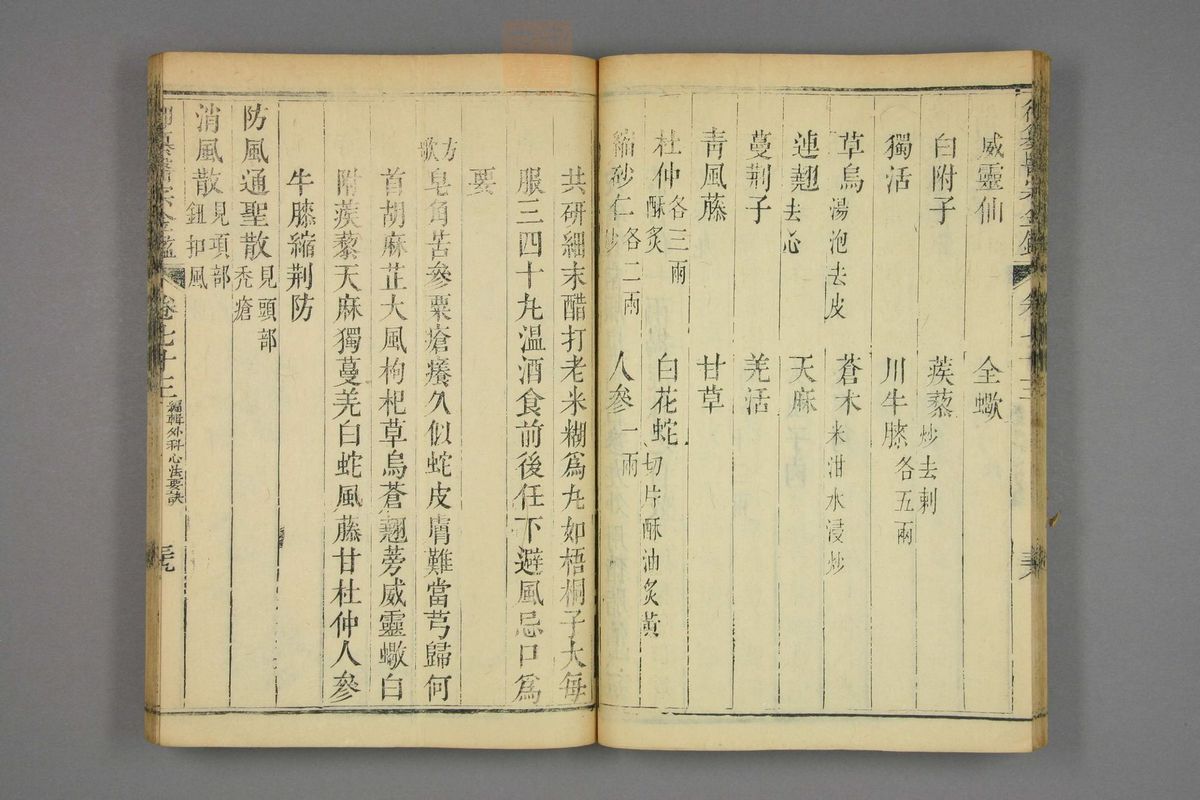 威靈仙 全蠍
白附子 蒺藜炒去刺
獨活 川牛膝各五兩
草烏湯泡去皮 蒼朮米泔水浸炒
連翹去心 天麻
蔓荆子 羌活
青風藤 甘草
杜仲酥炙各三兩 白花蛇切片酥油炙黃
縮砂仁炒各二兩 人參一兩
共研細末醋打老米糊爲丸如梧桐子大每
服三四十丸温酒食前後任下避風忌口爲
要
方歌 皂角苦參粟瘡癢久似蛇皮膚難當芎歸何
首胡麻芷大風枸杞草烏蒼翹蒡威靈蠍白
附蒺藜天麻獨蔓羌白蛇風藤甘杜仲人參
牛膝縮荆防
防風通聖散見頭部禿瘡
消風散見項部鈕扣風
卷七十三 編輯外科心法要訣